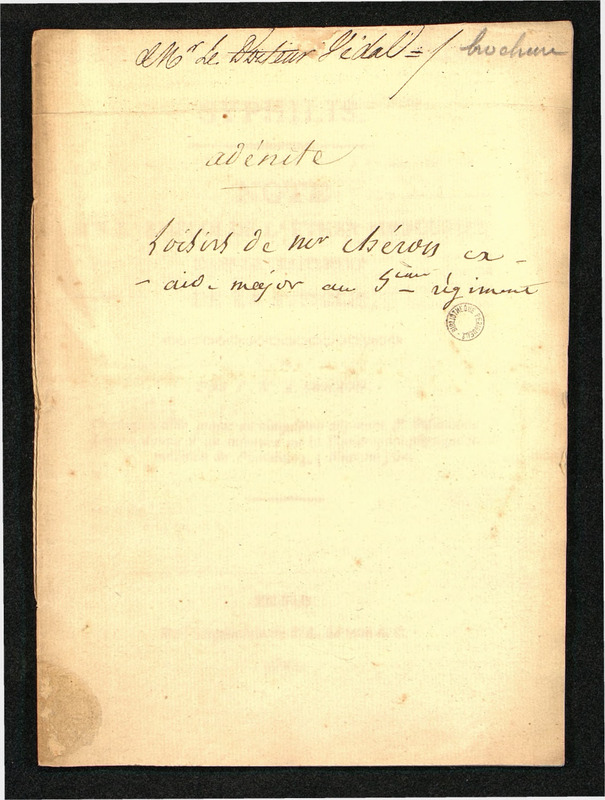 à Mr Le Docteur Vidal = / brochure
adénite
Loisirs de mr chéron ex -
- aid - major au 5ieme régiment